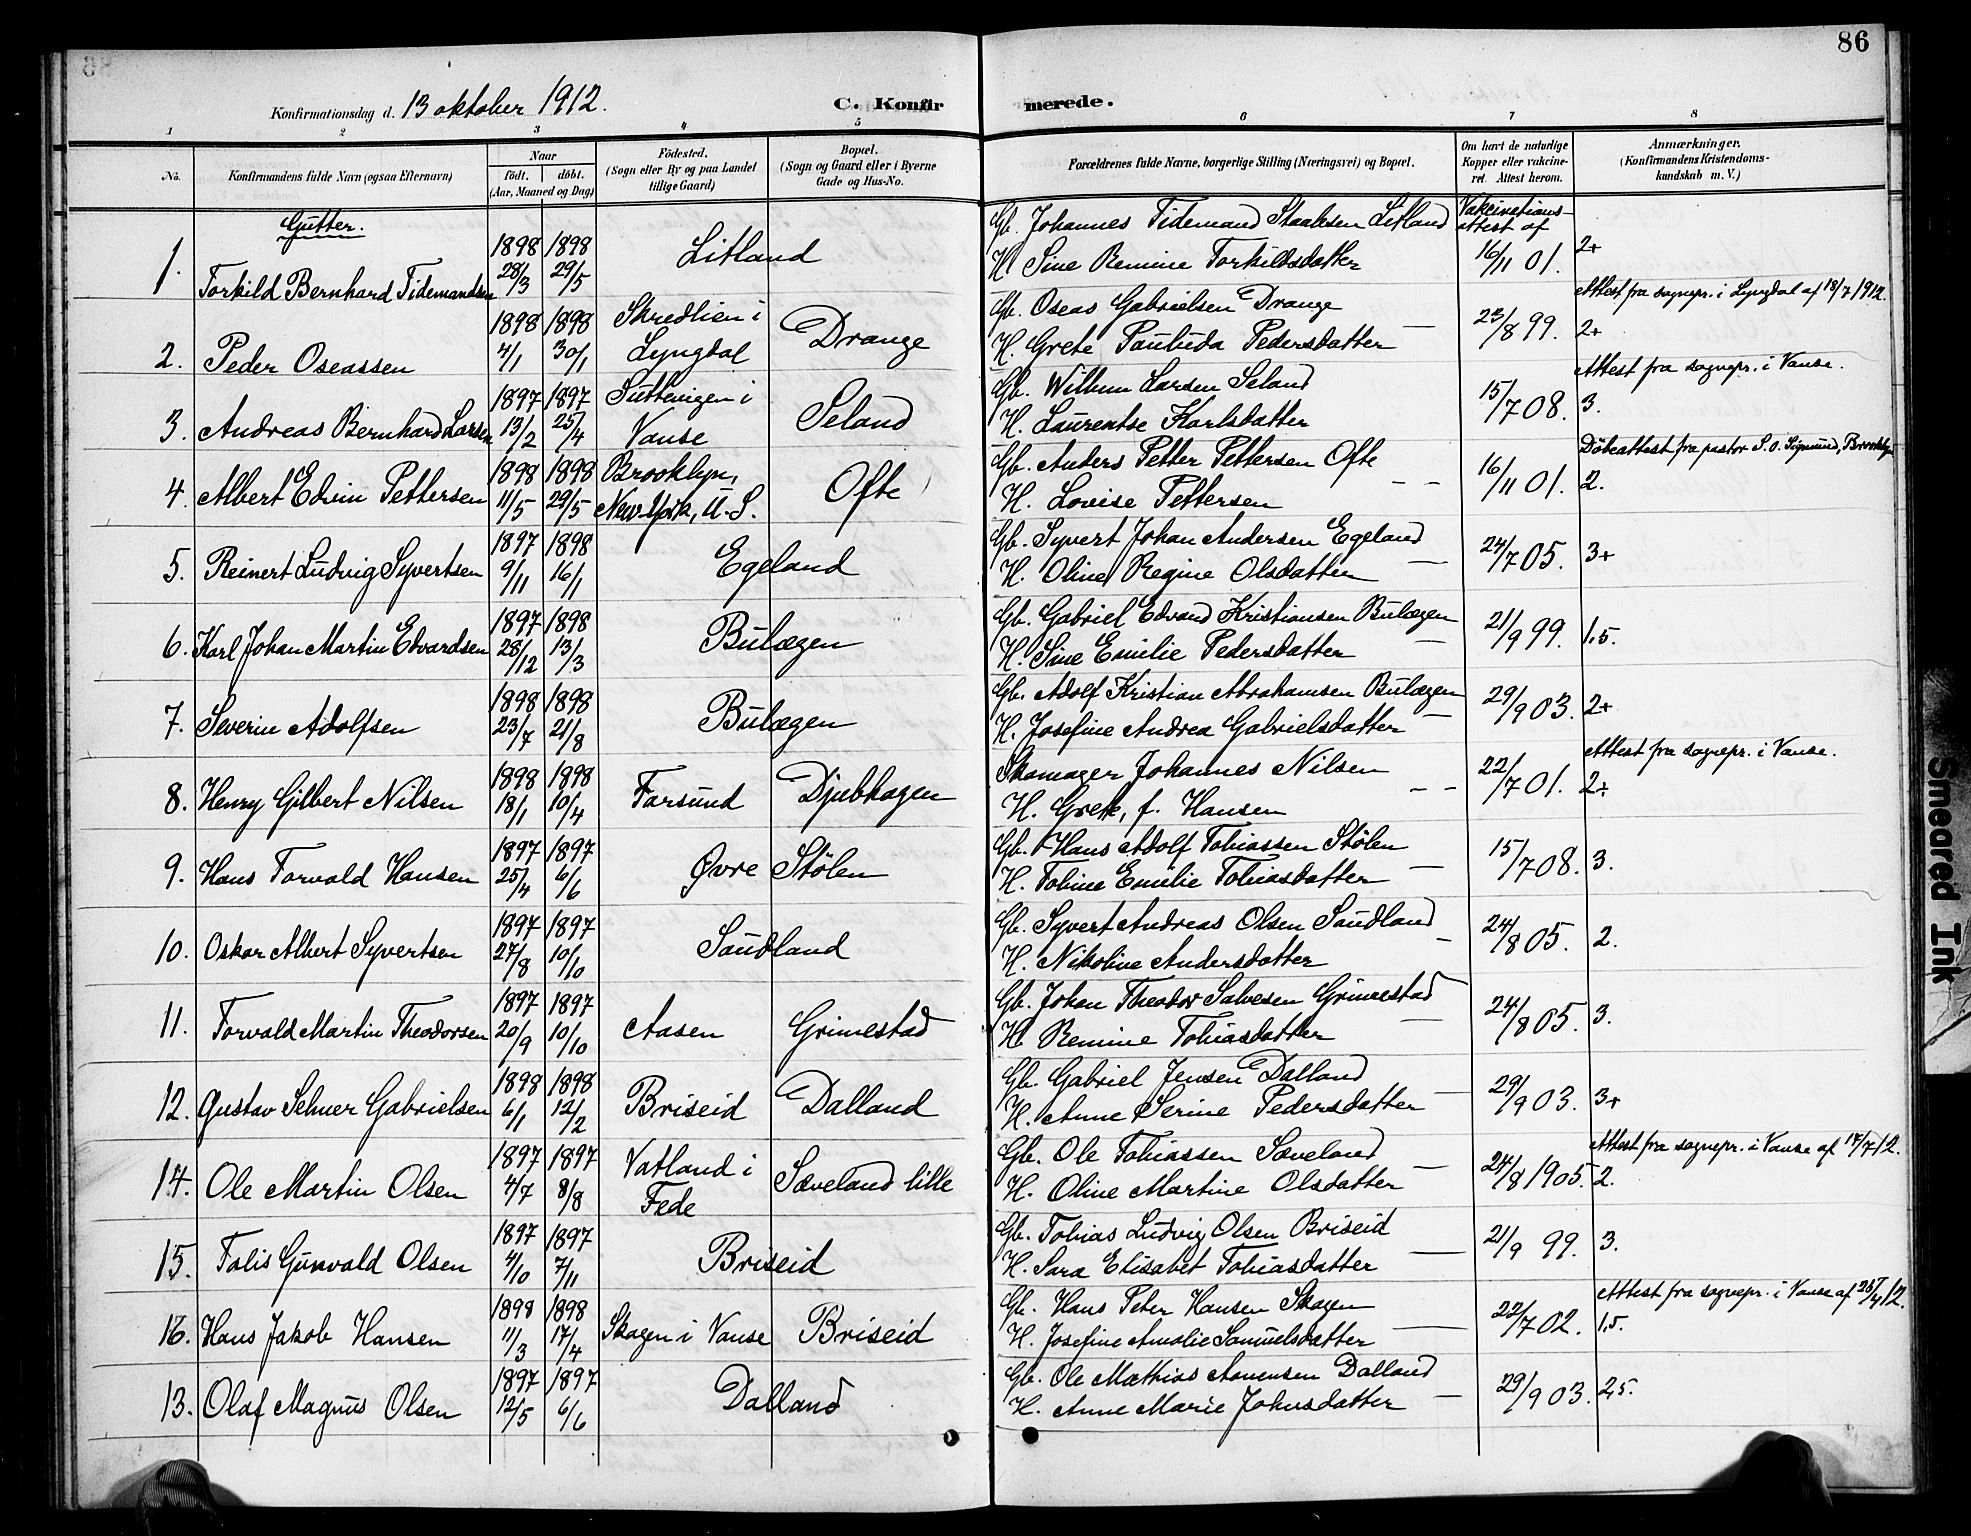 86
Konfirmationsdag d. 13 oktober 1912.
C. Konfirmerede.
1 2 3 4 5 6 7 8
No.
Konfirmandens fulde Navn (ogsaa Efternavn)
Naar
født. døbt.
(Aar, Maaned og Dag)
Fødested.
(Sogn eller By og paa Landet
tillige Gaard)
Bopæl.
(Sogn og Gaard eller i Byerne
Gade og Hus-No.
Forældrenes fulde Navne, borgerlige Stilling (Næringsvei) og Bopæl.
Om havt de naturlige
Kopper eller vakcine-
ret. Attest herom.
Anmærkninger.
(Konfirmandens Kristendoms-
kundskab m. V.)
Gutter.
1. Torkild Bernhard Tidemandsen 1898 28/3 1898 29/5 Litland
Gb. Johannes Tidemand Staalesen Litland
H. Sine Remine Torkildsdatter
Vakcinations-
attest af
16/11 01. 2+
2. Peder Oseassen 1898 4/1 1898 30/1 Skredlien i
Lyngdal Drange
Gb. Oseas Gabrielsen Drange
H. Grete Paulida Pedersdatter — 23/8 99. 2+
Attest fra sognepr. i Lyngdal af 18/7 1912.
3. Andreas Bernhard Larsen 1897 13/2 1897 25/4
Vanse Seland
Gb. Wilhelm Larsen Seland
H. Laurentse Karlsdatter 15/7 08. 3.
Attest fra sognepr. i Vanse.
4. Albert Edvin Pettersen 1898 11/5 1898 29/5 Brooklyn,
New York, U.S. Ofte
Gb. Anders Petter Pettersen Ofte
H. Lovise Pettersen — — 16/11 01. 2.
Døbeattest fra pastor S. O. Sigmund, Brooklyn
5. Reinert Ludvig Syvertsen 1897 9/11 1898 16/1 Egeland
Gb. Syvert Johan Andersen Egeland
H. Oline Regine Olsdatter — 24/7 05. 3+
6. Karl Johan Martin Edvardsen 1897 28/12 1898 13/3 Bulægen
Gb. Gabriel Edvard Kristiansen Bulægen
H. Sine Emilie Pedersdatter — 21/9 99. 1,5.
7. Severin Adolfsen 1898 23/7 1898 21/8 Bulægen
Gb. Adolf Kristian Abrahamsen Bulægen
H. Josefine Andrea Gabrielsdatter — 29/9 03. 2+
8. Henry Gilbert Nilsen 1898 18/1 1898 10/4 Farsund Djubhagen
Skomager Johannes Nilsen
H. Grete, f. Hansen — — 22/7 01. 2+
Attest fra sognepr. i Vanse.
9. Hans Torvald Hansen 1897 25/4 1897 6/6 Øvre Stølen
Gb. Hans Adolf Tobiassen Stølen
H. Tobine Emilie Tobiasdatter — 15/7 08. 3.
10. Oskar Albert Syvertsen 1897 27/8 1897 10/10 Saudland
Gb. Syvert Andreas Olsen Saudland
H. Nikoline Andersdatter — 24/8 05. 2.
11. Torvald Martin Theodorsen 1897 20/9 1897 10/10 Aasen Grimestad
Gb. Johan Theodor Salvesen Grimestad
H. Remine Tobiasdatter — 24/8 05. 3.
12. Gustav Selmer Gabrielsen 1898 6/1 1898 12/2 Briseid Dalland
Gb. Gabriel Jensen Dalland
H. Anne Serine Pedersdatter — 29/9 03. 3+
14. Ole Martin Olsen 1897 4/7 1897 8/8 Vatland i
Fede Sæveland lille
Gb. Ole Tobiassen Sæveland
H. Oline Martine Olsdatter — 24/8 1905. 2.
Attest fra sognepr. i Vanse af 17/7 12.
15. Talis Gunvald Olsen 1897 4/10 1897 7/11 Briseid
Gb. Tobias Ludvig Olsen Briseid
H. Sara Elisabet Tobiasdatter — 21/9 99. 3.
16. Hans Jakob Hansen 1898 11/3 1898 17/4 Skagen i Vanse Briseid
Gb. Hans Peter Hansen Skagen
H. Josefine Amalie Samuelsdatter — 22/7 02. 1,5.
Attest fra sognepr. i Vanse af
13. Olaf Magnus Olsen 1897 12/5 1897 6/6 Dalland
Gb. Ole Mathias Aanensen Dalland
H. Anne Marie Johnsdatter — 29/9 03. 2,5.
Smeared Ink